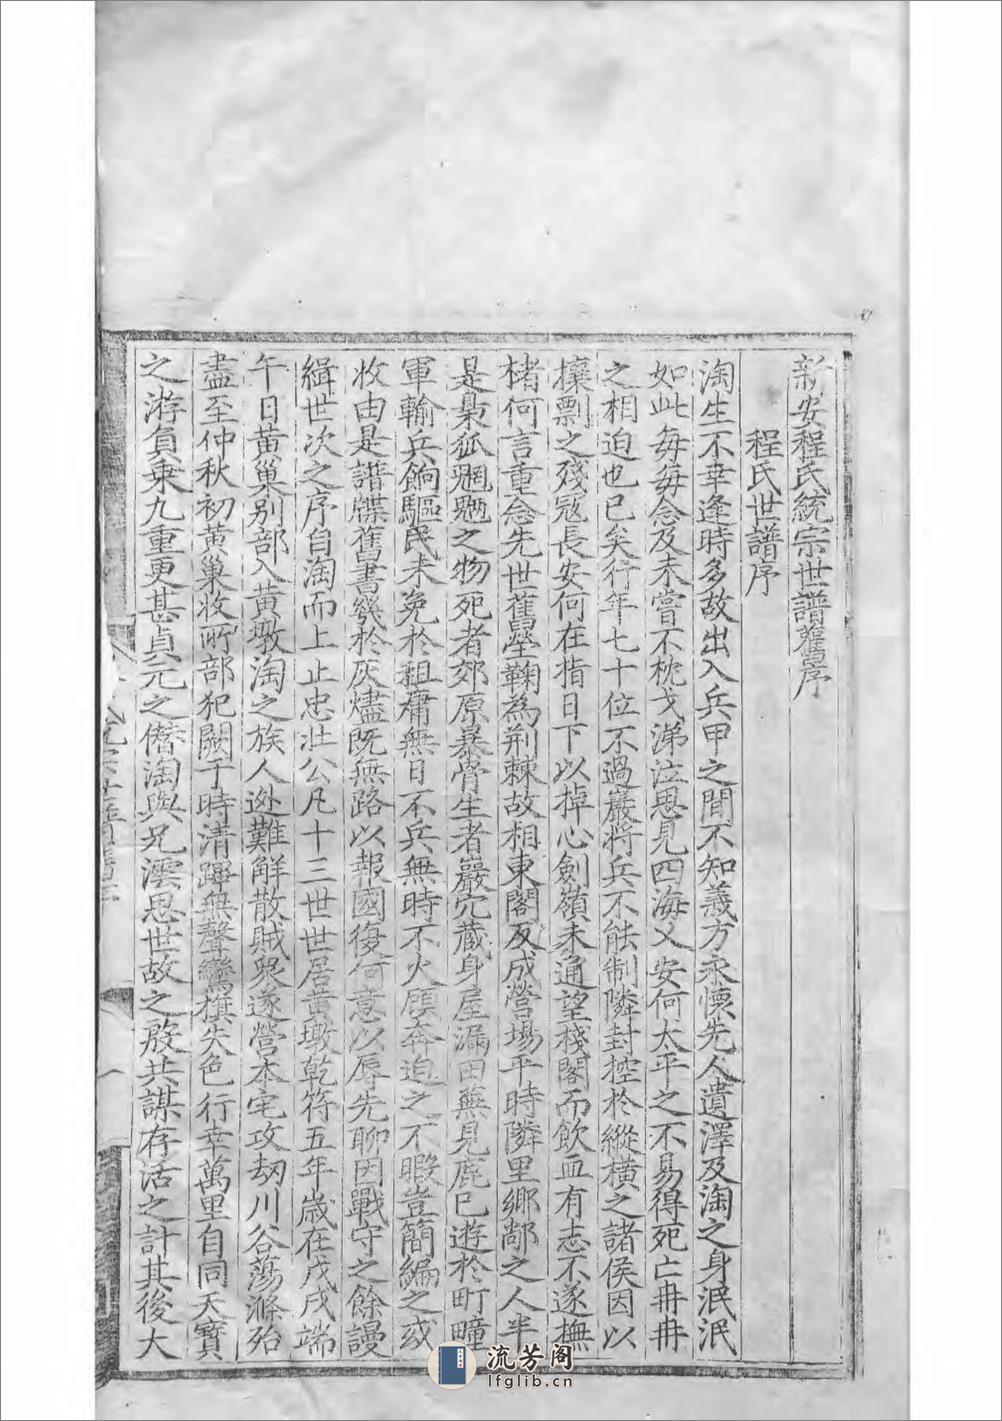 新安程氏統宗世譜舊序
程氏世譜序
淘生不幸逢時多故出入兵甲之間不知義方永懷先人遺澤及淘之身泯泯
如此每每念及未嘗不枕戈涕泣思見四海乂安何太平之不易得死亡冉冉
之相迫也已矣行年七十位不過嚴將兵不能制隣封控於縱橫之諸侯因以
攘剽之殘冦長安何在指日下以掉心劍嶺未通望棧閣而飲血有志不遂撫
楮何言重念先世舊塋鞠為荆棘故相東閣反成營場平時隣里鄉鄰之人半
是梟狐魍魎之物死者郊原暴骨生者巖穴蔵身屋漏田蕪見鹿巳遊於町疃
軍輸兵餉驅民未免於租庸無日不兵無時不火顧奔迫之不暇豈簡編之或
收由是譜牒舊書幾於灰燼既無路以報國復何意以辱先聊因戰守之餘謾
緝世次之序自淘而上止忠壯公凡十三世世居黄墩乾符五年歲在戊戌端
午日黄巢别部入黄墩淘之族人迯難解散賊衆遂營本宅攻刼川谷蕩滌殆
盡至仲秋初黄巢收所部犯闕于時清蹕無聲鸞旗失色行幸萬里自同天寳
之游負乗九重更甚貞元之僭淘與兄澐思世故之殷共謀存活之計其後大
流芳阁
lfglib.cn